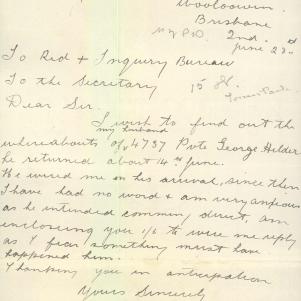 Woolloowin.
Brisbane
June 23rd
To Red + Inquiry Bureau
To the Secretary
15 H.
Dear Sir.
I wish to find out the
my husband
whereabouts of 4737 Pvte George Helder
he returned about 14th June.
He wired me on his arrival, since then
I have had no word & am very anxious
as he intended comming direct, am
enclosing you 1/6 to wire me reply
as I fear something must have
happened him.
Thanking you in anticipation
Yours Sincerely